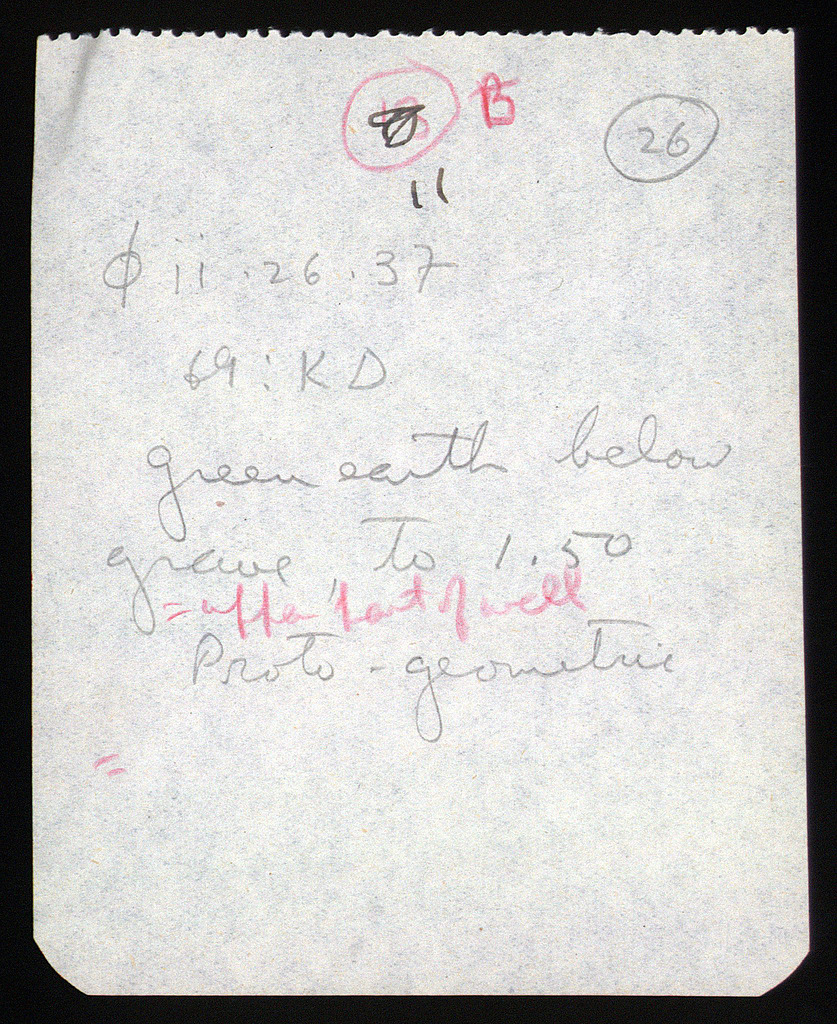 B 26
11
φ ii.26.37
69:KD
green earth below
grave, to 1.50
= upper part of well
Proto-geometric
=